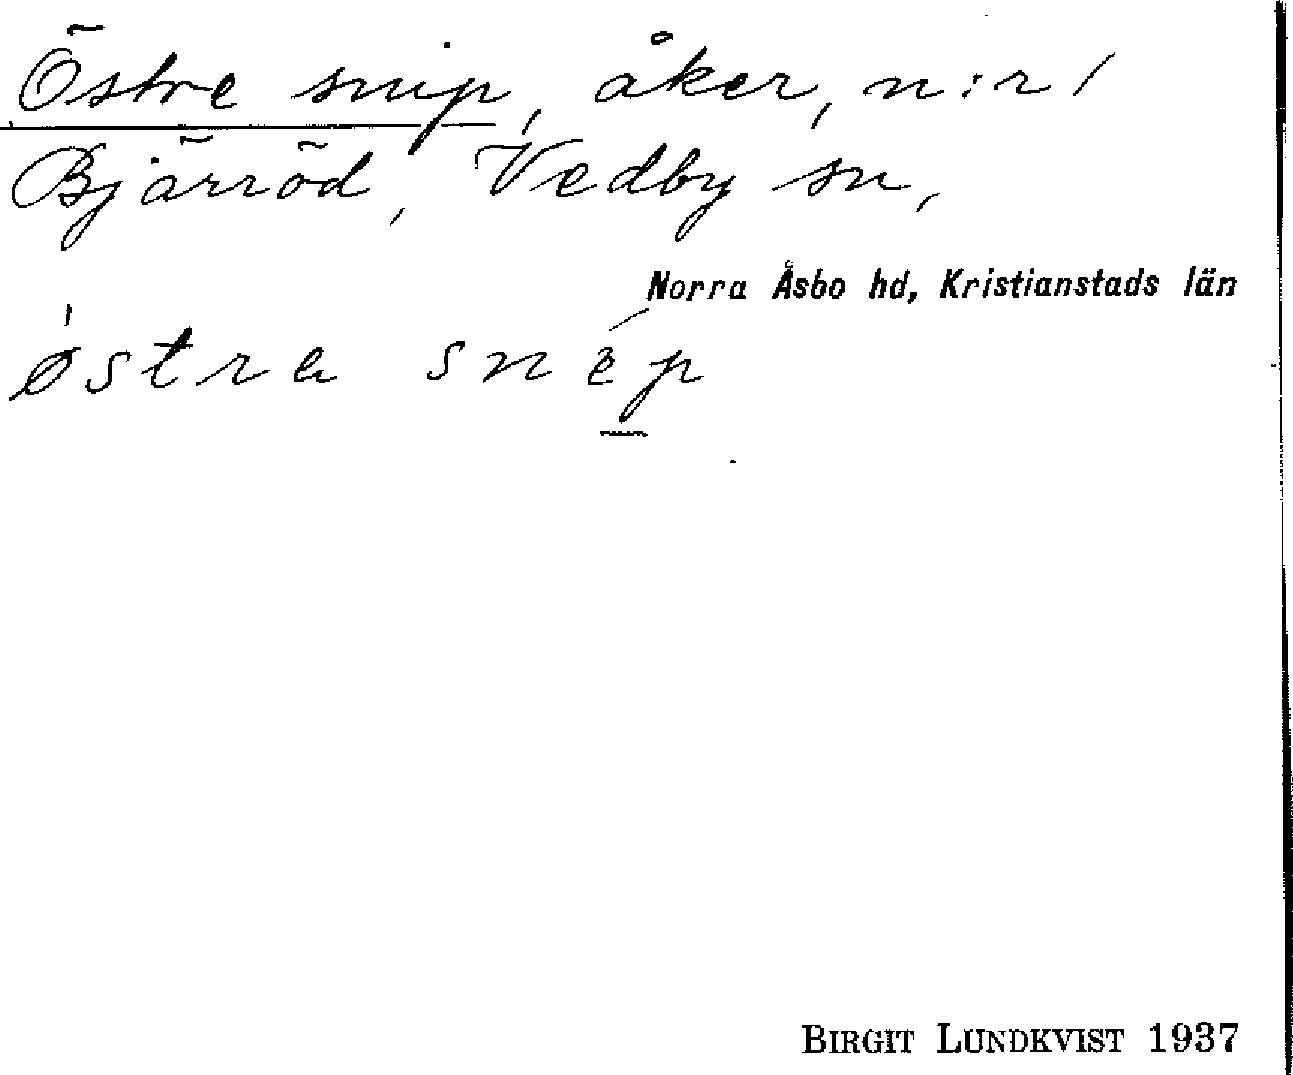 Östre snip, åker, n:r 1
Bjärröd, Vedby sn,
Norra Åsbo hd, Kristianstads län
østra snep
BIRGIT LUNDKVIST 1937